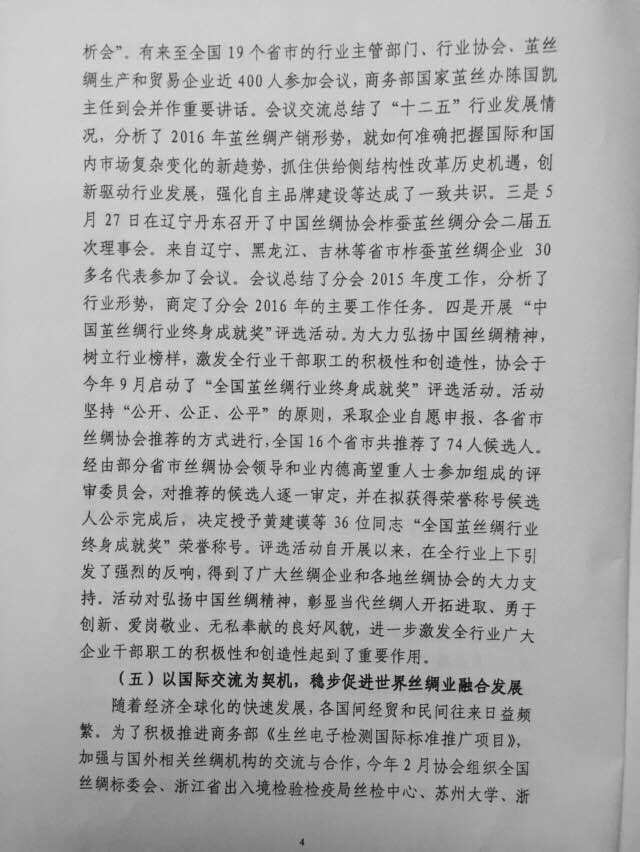 析会”。有来至全国 19 个省市的行业主管部门、行业协会、茧丝
绸生产和贸易企业近 400 人参加会议，商务部国家茧丝办陈国凯
主任到会并作重要讲话。会议交流总结了“十二五”行业发展情
况，分析了 2016 年茧丝绸产销形势，就如何准确把握国际和国
内市场复杂变化的新趋势，抓住供给侧结构性改革历史机遇，创
新驱动行业发展，强化自主品牌建设等达成了一致共识。三是 5
月 27 日在辽宁丹东召开了中国丝绸协会柞蚕茧丝绸分会二届五
次理事会。来自辽宁、黑龙江、吉林等省市柞蚕茧丝绸企业 30
多名代表参加了会议。会议总结了分会 2015 年度工作，分析了
行业形势，商定了分会 2016 年的主要工作任务。四是开展“中
国茧丝绸行业终身成就奖”评选活动。为大力弘扬中国丝绸精神，
树立行业榜样，激发全行业干部职工的积极性和创造性，协会于
今年 9 月启动了“全国茧丝绸行业终身成就奖”评选活动。活动
坚持“公开、公正、公平”的原则，采取企业自愿申报、各省市
丝绸协会推荐的方式进行，全国 16 个省市共推荐了 74 人候选人。
经由部分省市丝绸协会领导和业内德高望重人士参加组成的评
审委员会，对推荐的候选人逐一审定，并在拟获得荣誉称号候选
人公示完成后，决定授予黄建谟等 36 位同志“全国茧丝绸行业
终身成就奖”荣誉称号。评选活动自开展以来，在全行业上下引
发了强烈的反响，得到了广大丝绸企业和各地丝绸协会的大力支
持。活动对弘扬中国丝绸精神，彰显当代丝绸人开拓进取、勇于
创新、爱岗敬业、无私奉献的良好风貌，进一步激发全行业广大
企业干部职工的积极性和创造性起到了重要作用。
（五）以国际交流为契机，稳步促进世界丝绸业融合发展
随着经济全球化的快速发展，各国间经贸和民间往来日益频
繁。为了积极推进商务部《生丝电子检测国际标准推广项目》，
加强与国外相关丝绸机构的交流与合作，今年 2 月协会组织全国
丝绸标委会、浙江省出入境检验检疫局丝检中心、苏州大学、浙
4